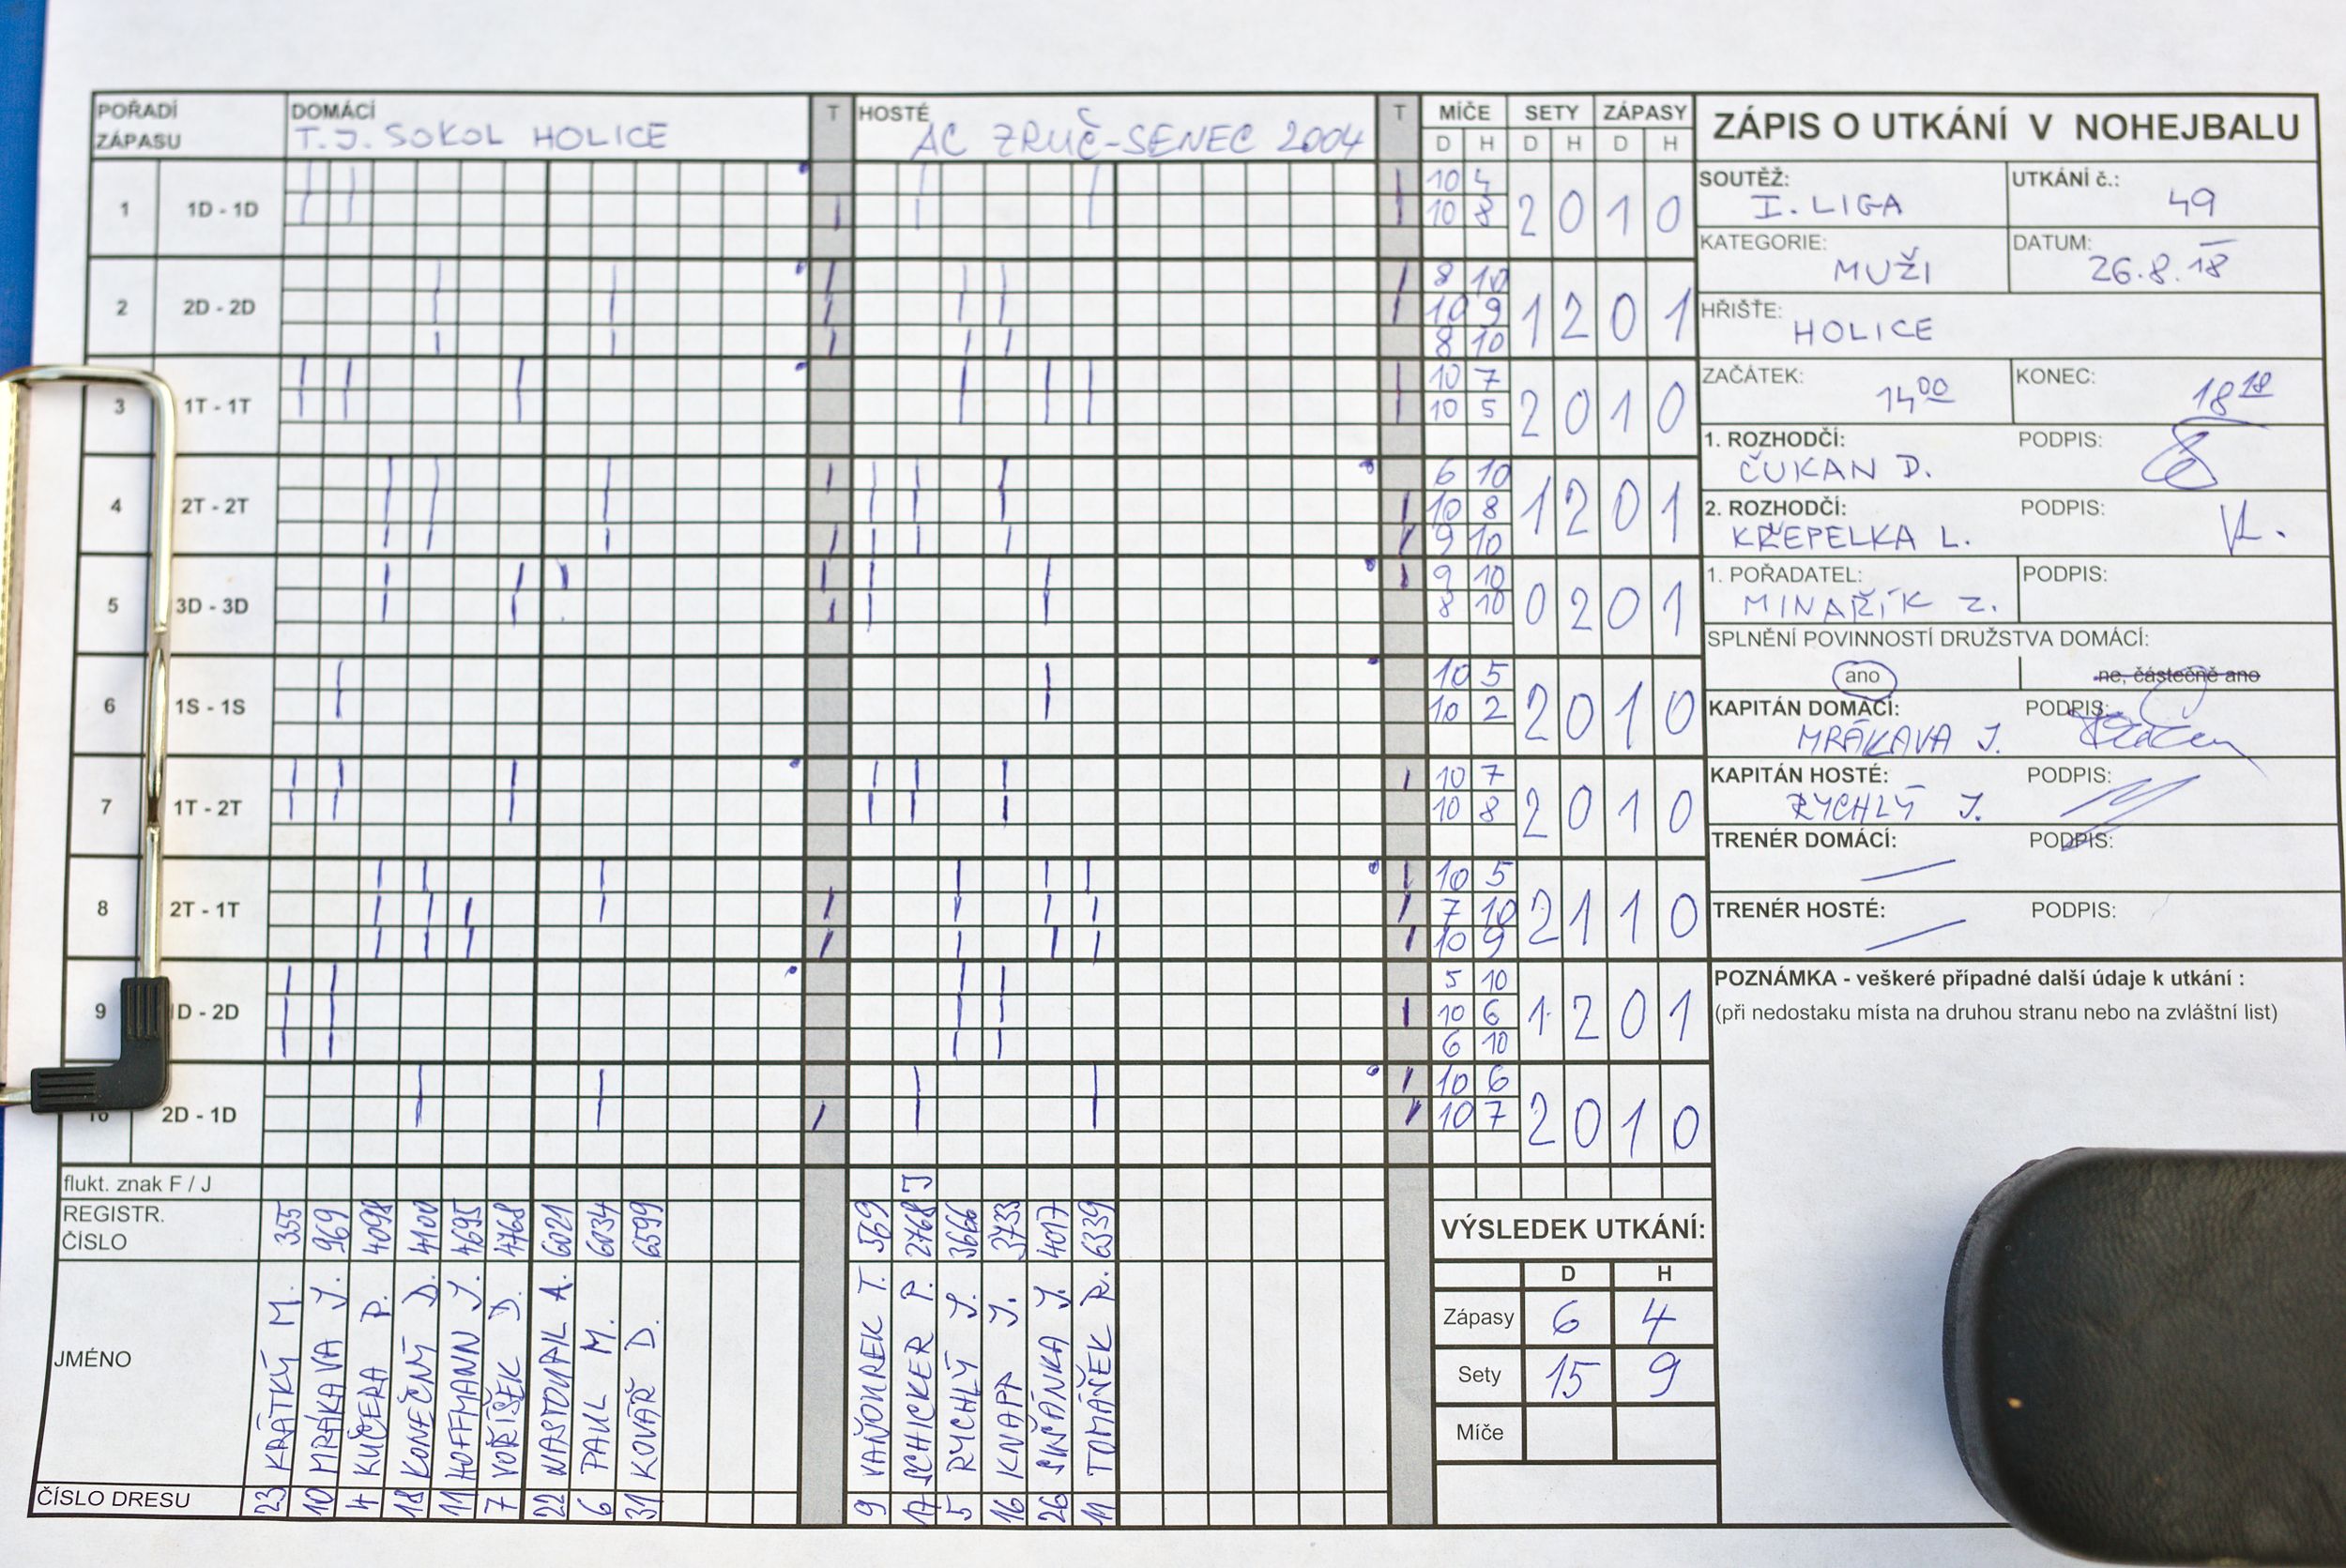 POŘADÍ ZÁPASU
DOMÁCÍ
T. J. SOKOL HOLICE
T
HOSTÉ
AC ZRUČ-SENEC 2004
T
MÍČE SETY ZÁPASY
D H D H D H
1 1D - 1D
10 4
10 8
2 0 1 0
2 2D - 2D
8 10
10 9
8 10
1 2 0 1
3 1T - 1T
10 7
10 5
2 0 1 0
4 2T - 2T
6 10
10 8
9 10
1 2 0 1
5 3D - 3D
9 10
8 10
0 2 0 1
6 1S - 1S
10 5
10 2
2 0 1 0
7 1T - 2T
10 7
10 8
2 0 1 0
8 2T - 1T
10 5
7 10
10 9
2 1 1 0
9 1D - 2D
5 10
10 6
6 10
1 2 0 1
10 2D - 1D
10 6
10 7
2 0 1 0
flukt. znak F / J
J
REGISTR. ČÍSLO
355 969 4098 4100 4695 4768 6021 6034 6599
569 2768 3666 3733 4017 6339
JMÉNO
KRÁTKÝ M.
MRÁKAVA J.
KUČERA P.
KONEČNÝ D.
HOFFMANN J.
VOŘÍŠEK D.
NASTOUPIL A.
PAUL M.
KOVÁŘ D.
T.
SCHICKER P.
RYCHLÝ J.
KNAPP J.
J.
TOMÁŠEK R.
ČÍSLO DRESU
23 10 4 18 11 7 22 6 31
9 17 5 16 26 11
ZÁPIS O UTKÁNÍ V NOHEJBALU
SOUTĚŽ:
I. LIGA
UTKÁNÍ č.:
49
KATEGORIE:
MUŽI
DATUM:
26.8.18
HŘIŠTE:
HOLICE
ZAČÁTEK:
14 00
KONEC:
18 18
1. ROZHODČÍ:
ČUKAN D.
PODPIS:
2. ROZHODČÍ:
KŘEPELKA L.
PODPIS:
1. POŘADATEL:
MINAŘÍK Z.
PODPIS:
SPLNĚNÍ POVINNOSTÍ DRUŽSTVA DOMÁCÍ:
ano
ne, částečně ano
KAPITÁN DOMACÍ:
MRÁKAVA J.
PODPIS:
KAPITÁN HOSTÉ:
RYCHLÝ J.
PODPIS:
TRENÉR DOMÁCÍ:
PODPIS:
TRENÉR HOSTÉ:
PODPIS:
POZNÁMKA - veškeré případné další údaje k utkání :
(při nedostaku místa na druhou stranu nebo na zvláštní list)
VÝSLEDEK UTKÁNÍ:
D H
Zápasy 6 4
Sety 15 9
Míče